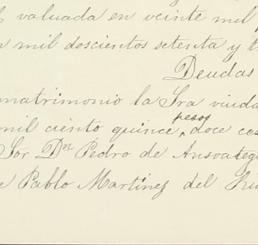 valuada en veinte mil p
n mil doscientos setenta y t
Deudas
matrimonio la Sra viuda
mil ciento quince pesos doce ce
Sor Dn Pedro de Ansoateg
e Pablo Martinez del